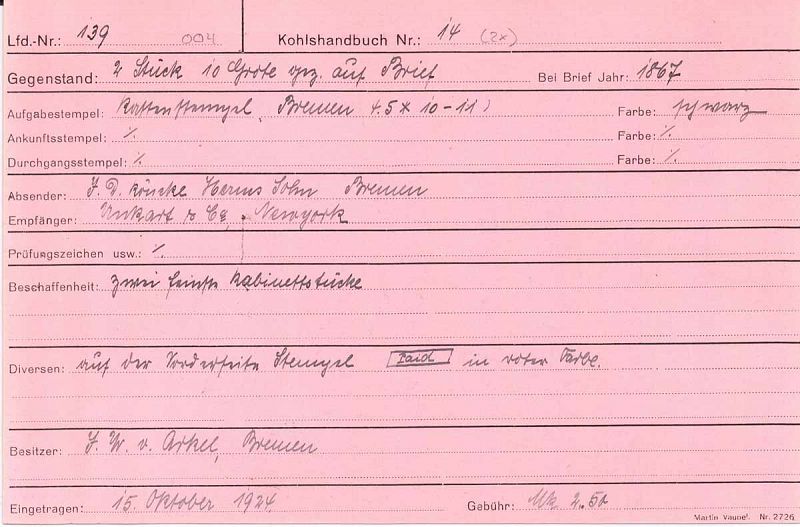 Lfd.-Nr.: 139 004 Kohlshandbuch Nr.: 14 (2x)
Gegenstand: 2 Stück 10 Grote gez. auf Brief Bei Brief Jahr: 1867
Aufgabestempel: Kastenstempel, Bremen 4.5 * 10-11) Farbe: schwarz
Ankunftsstempel: ./. Farbe: ./.
Durchgangsstempel: ./. Farbe: ./.
Absender: J. D. Köncke Herms Sohn Bremen
Empfänger: Unkart & Co, Newyork
Prüfungszeichen usw.: ./.
Beschaffenheit: zwei feinste Kabinettstücke
Diversen: auf der Vorderseite Stempel Paid in roter Farbe.
Besitzer: J. W. v. Arkel, Bremen
Eingetragen: 15. Oktober 1924 Gebühr: Mk 2.50
Nr. 2726